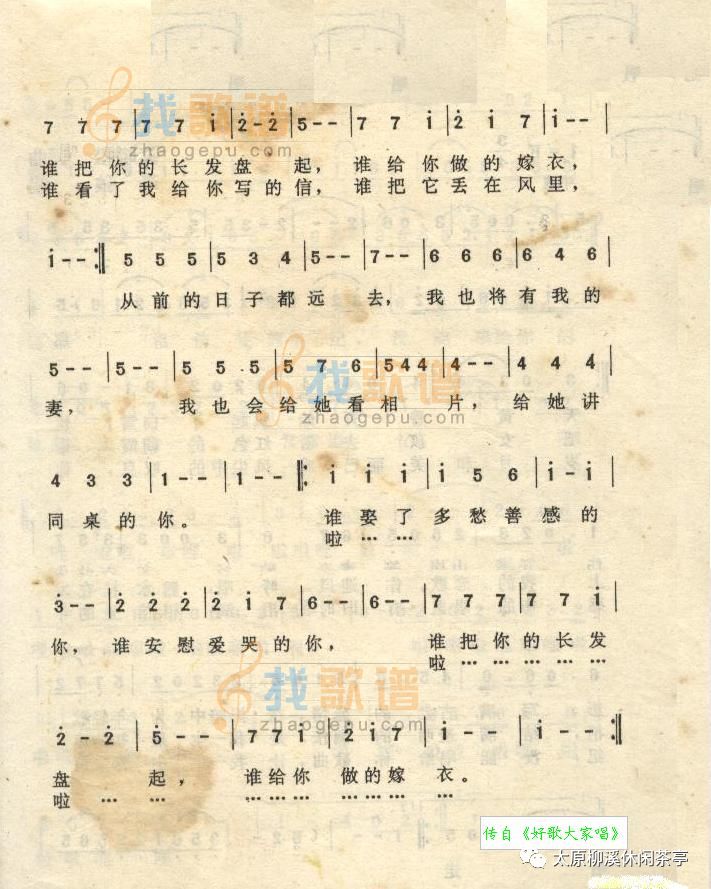 7 7 7 | 7 7 i | 2̇ - 2̇ | 5 - - | 7 7 i | 2̇ i 7 | i - - |
谁把你的长发盘 起，谁给你做的嫁衣，
谁看了我给你写的信，谁把它丢在风里，
i - - :‖ 5 5 5 | 5 3 4 | 5 - - | 7 - - | 6 6 6 | 6 4 6 |
从前的日子都远 去，我也将有我的
5 - - | 5 - - | 5 5 5 | 5 7 6 | 5 4 4 | 4 - - | 4 4 4 |
妻， 我也会给她看相 片，给她讲
4 3 3 | 1 - - | 1 - - ‖: i i i | i 5 6 | i - i |
同桌的你。 谁娶了多愁善感的
啦……
3̇ - - | 2̇ 2̇ 2̇ | 2̇ i 7 | 6 - - | 6 - - | 7 7 7 | 7 7 i |
你，谁安慰爱哭的你， 谁把你的长发
啦…………………
2̇ - 2̇ | 5 - - | 7 7 i | 2̇ i 7 | i - - | i - - :‖
盘 起，谁给你 做的嫁 衣。
啦………………………
找歌谱
zhaogepu.com
找歌谱
zhaogepu.com
找歌谱
zhaogepu.com
传自《好歌大家唱》
太原柳溪休闲茶亭